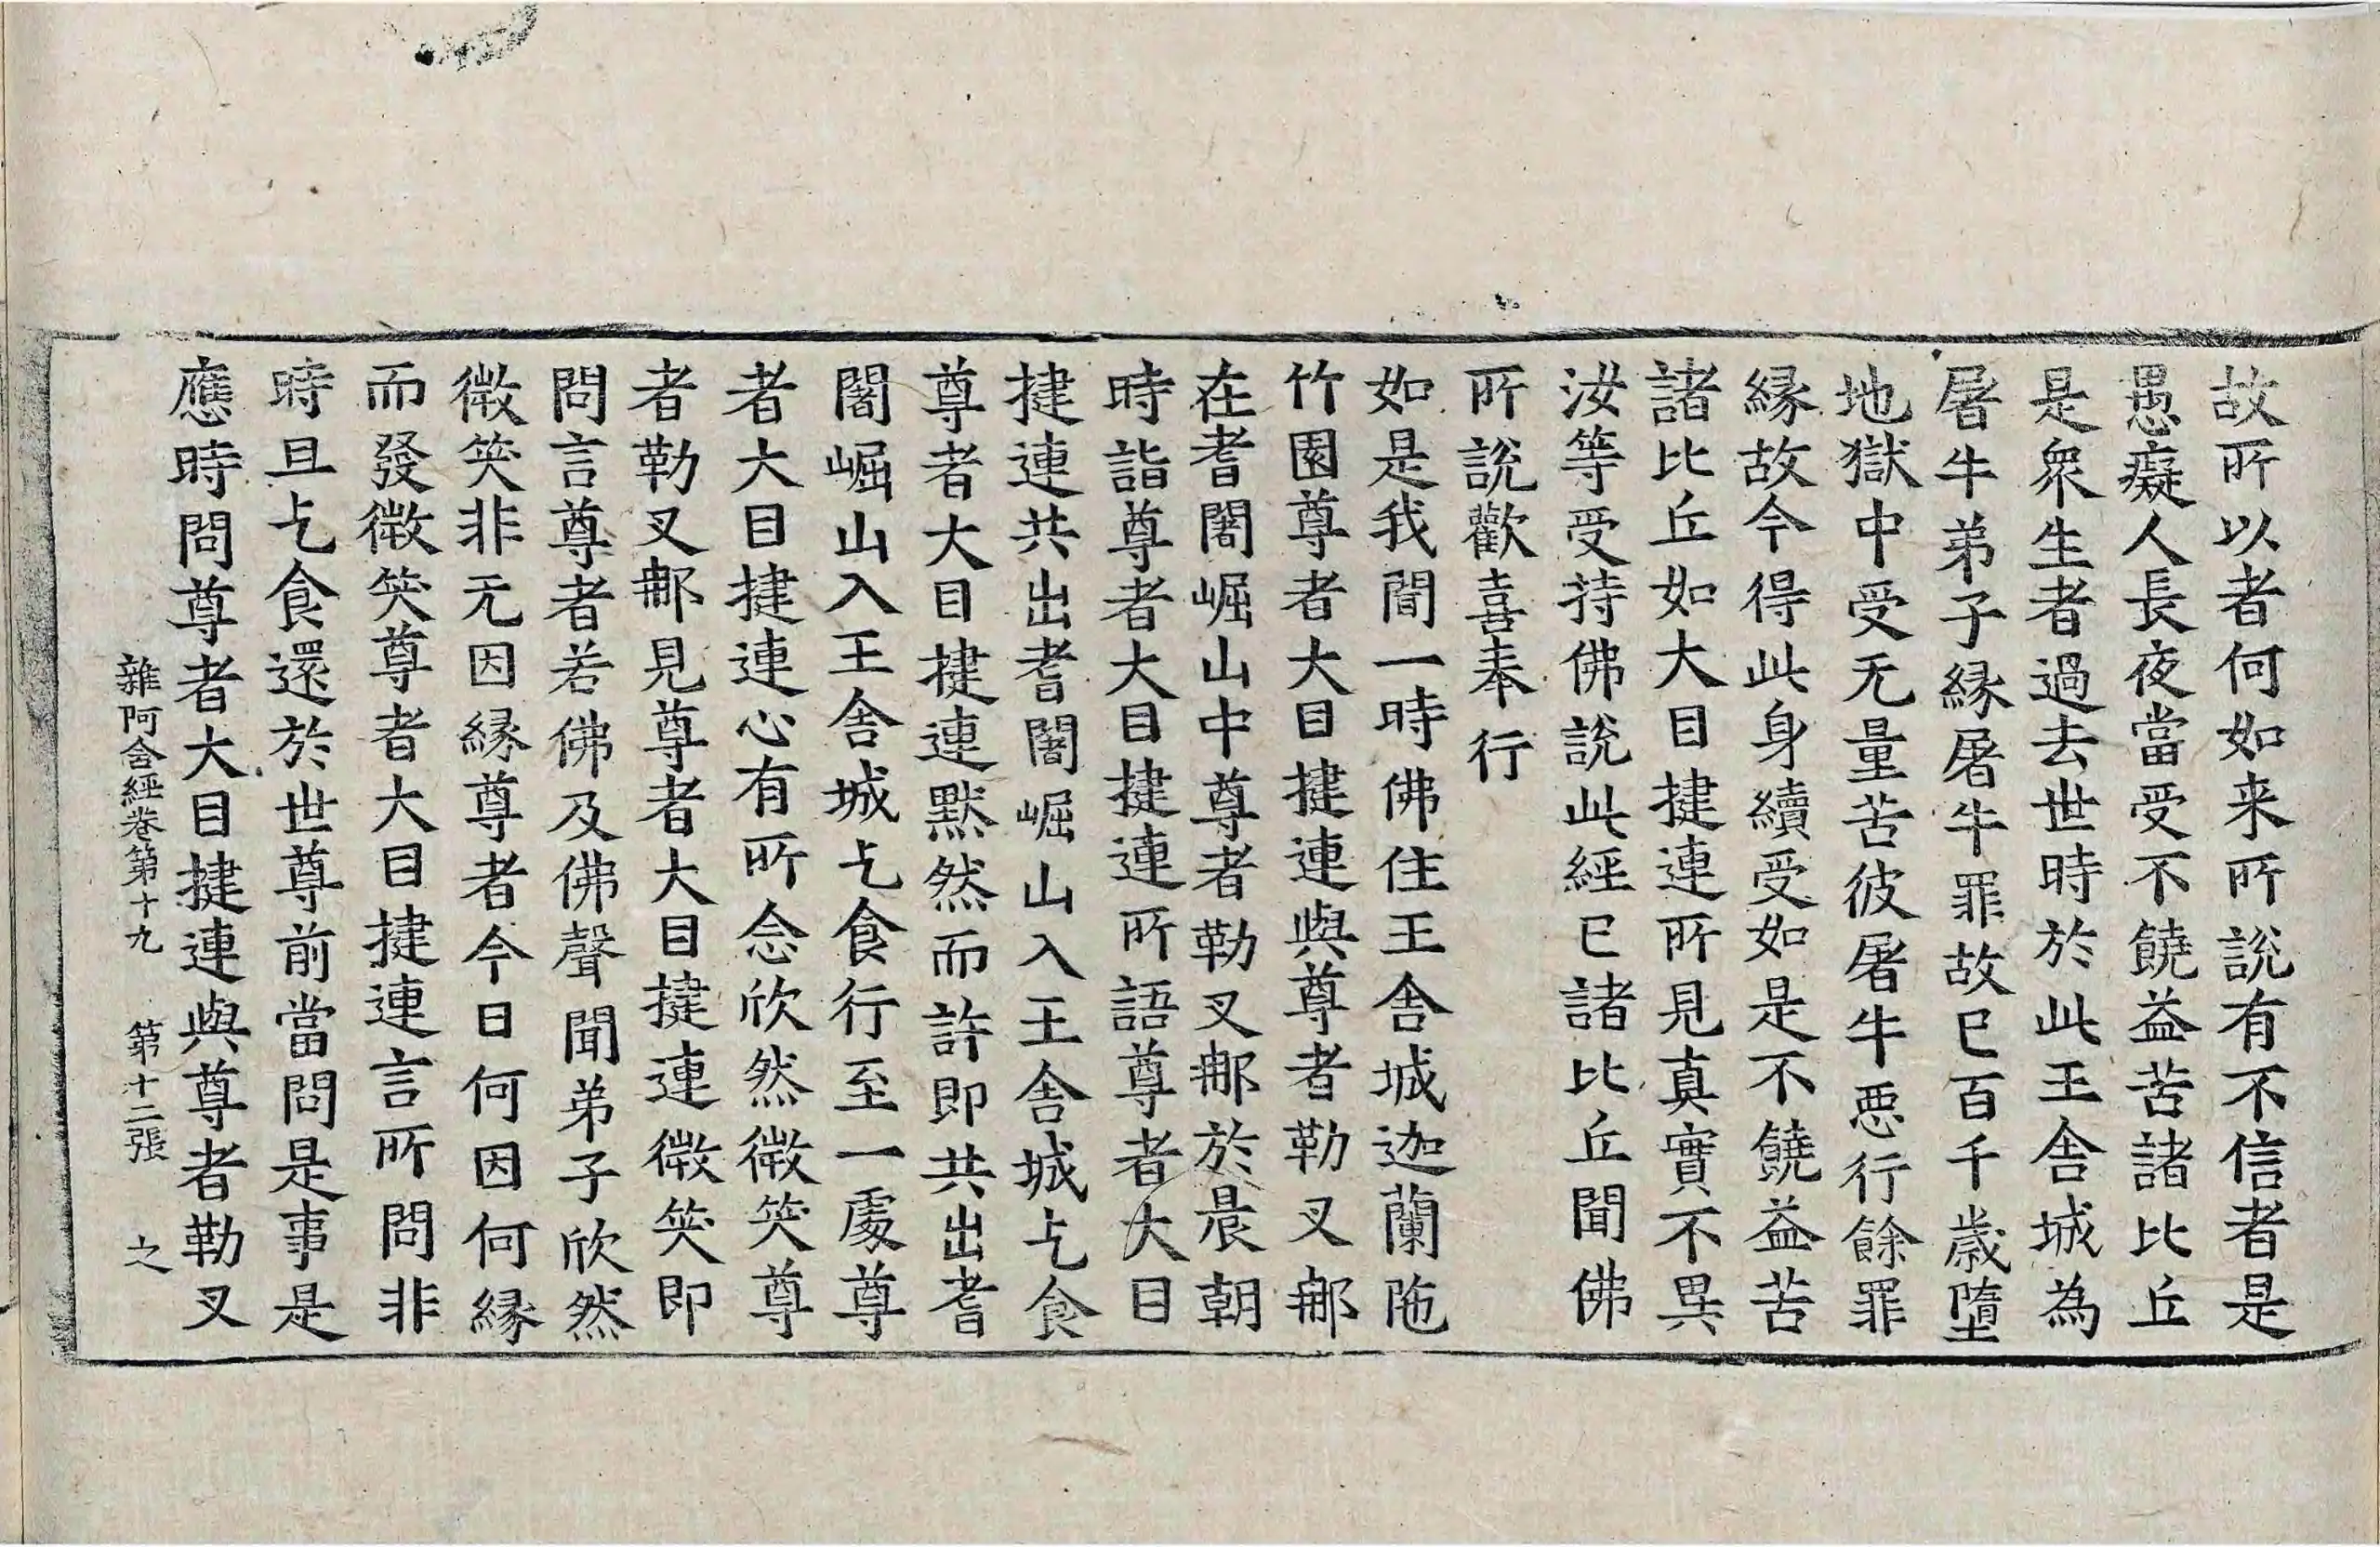 故所以者何如来所說有不信者是
愚癡人長夜當受不饒益苦諸比丘
是衆生者過去世時於此王舍城為
屠牛弟子縁屠牛罪故已百千歲墮
地獄中受无量苦彼屠牛惡行餘罪
縁故今得此身續受如是不饒益苦
諸比丘如大目揵連所見真實不異
汝等受持佛說此經已諸比丘聞佛
所說歡喜奉行
如是我聞一時佛住王舍城迦蘭陁
竹園尊者大目揵連與尊者勒叉郍
在耆闍崛山中尊者勒叉郍於晨朝
時詣尊者大目揵連所語尊者大目
揵連共出耆闍崛山入王舍城乞食
尊者大目揵連默然而許即共出耆
闍崛山入王舍城乞食行至一處尊
者大目揵連心有所念欣然微笑尊
者勒叉郍見尊者大目揵連微笑即
問言尊者若佛及佛聲聞弟子欣然
微笑非无因縁尊者今日何因何縁
而發微笑尊者大目揵連言所問非
時且乞食還於世尊前當問是事是
應時問尊者大目揵連與尊者勒叉
雜阿含經卷第十九 第十二張 之